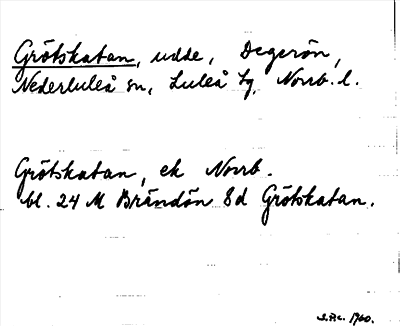 Grötskatan, udde, Degerön,
Nederluleå sn, Luleå tg, Norrb. l.
Grötskatan, ek Norrb.
bl. 24 M Brändön 8d Grötskatan.
1960.